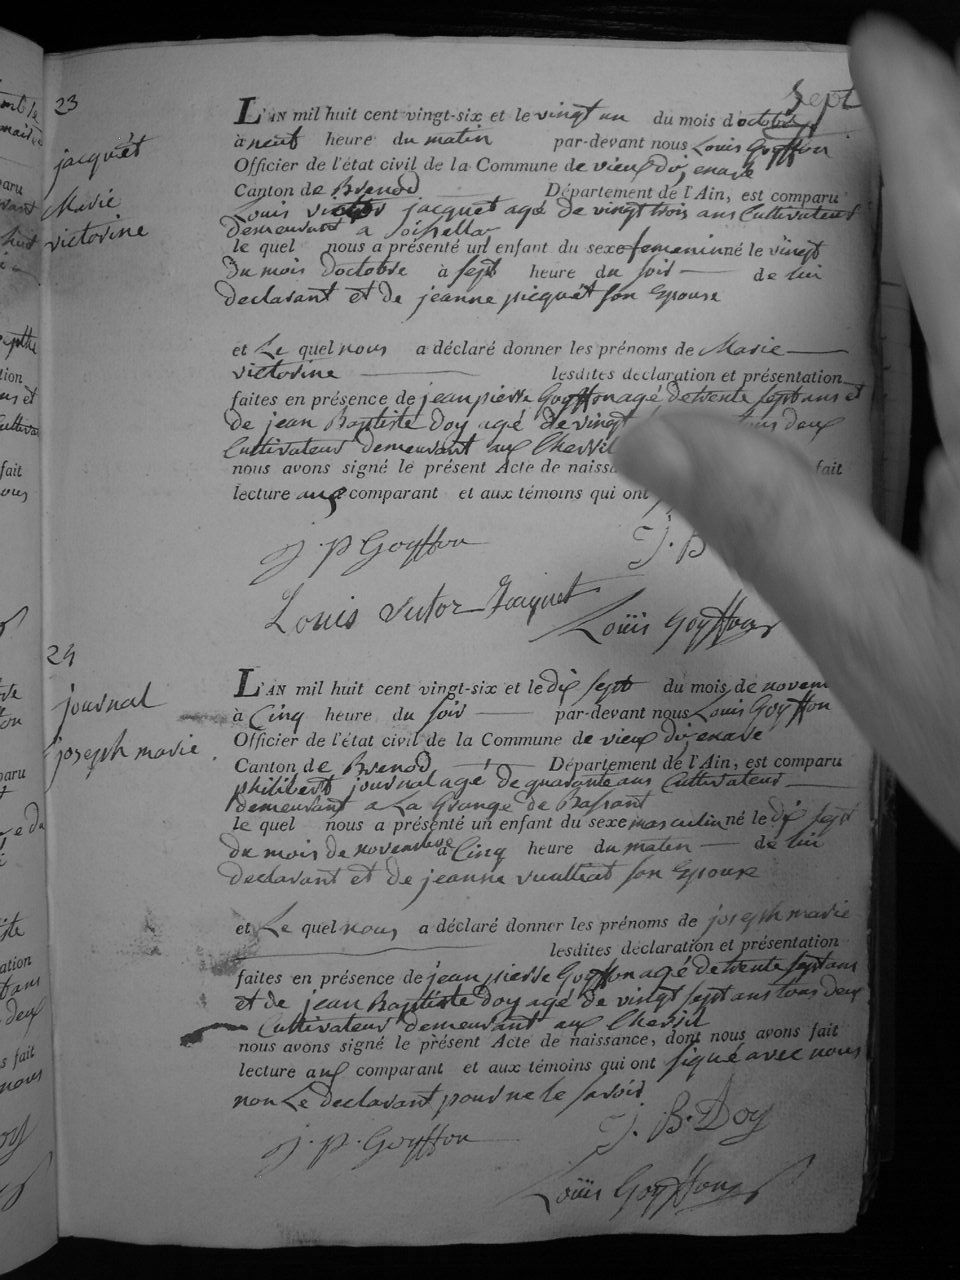 Sept
23
jacquet
Marie
victorine
L'AN mil huit cent vingt-six et le vingt un du mois d'octobre
à neuf heure du matin par-devant nous Louis Goyffon
Officier de l'état civil de la Commune de vieux d'izenave
Canton de Brenod Département de l'Ain, est comparu
Louis victor jacquet agé de vingt trois ans Cultivateur
demeurant a
le quel nous a présenté un enfant du sexe femenin né le vingt
du mois d'octobre à sept heure du soir de lui
declarant et de jeanne picquet son Epouse
et Le quel nous a déclaré donner les prénoms de Marie
victorine lesdites déclaration et présentation
faites en présence de jean pierre Goyffon agé de trente sept ans et
de jean Baptiste Doy agé de vingt tous deux
Cultivateur demeurant aux
nous avons signé le présent Acte de naissa fait
lecture aux comparant et aux témoins qui ont
J. P Goyffon
J. B
Louis victor Jaquet
Louis Goyffon
24
journal
joseph marie
L'AN mil huit cent vingt-six et le dix sept du mois de novem
à Cinq heure du soir par-devant nous Louis Goyffon
Officier de l'état civil de la Commune de vieux d'izenave
Canton de Brenod Département de l'Ain, est comparu
philibert journal agé de quarante ans Cultivateur
demeurant a La Grange de
le quel nous a présenté un enfant du sexe masculin né le dix sept
du mois de novembre à Cinq heure du matin de lui
declarant et de jeanne vuilliat son Epouse
et Le quel nous a déclaré donner les prénoms de joseph marie
lesdites déclaration et présentation
faites en présence de jean pierre Goyffon agé de trente sept ans
et de jean Baptiste Doy agé de vingt sept ans tous deux
Cultivateur demeurant aux
nous avons signé le présent Acte de naissance, dont nous avons fait
lecture aux comparant et aux témoins qui ont signé avec nous
non Le declarant pour ne le savoir
J. P. Goyffon
J. B. Doy
Louis Goyffon